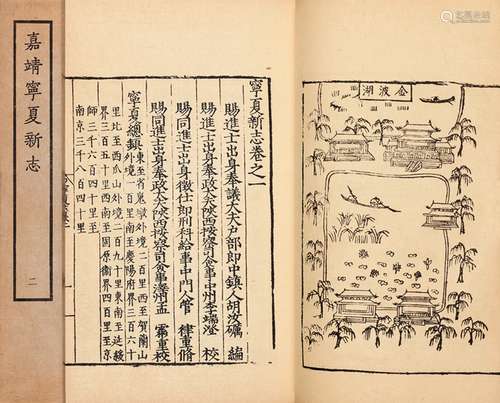 嘉靖寧夏新志
二
寧夏新志卷之一
賜進士出身奉議大夫戶部郎中鎮人胡汝礪 編
賜進士出身奉政大夫陝西按察司僉事中州李端澄 校
賜同進士出身徵仕郎刑科給事中門人管 律重脩
賜同進士出身奉政大夫陝西按察司僉事澤州孟 霦重校
寧夏總鎮
東至省嵬墩外境二百里西至賀蘭山
外境一百里南至慶陽府界三百六十
里北至西瓜山外境二百九十里東南至延綏
界三百五十里西南至固原衛界四百里至京
師三千六百四十里至
南京三千八百四十里
金波湖